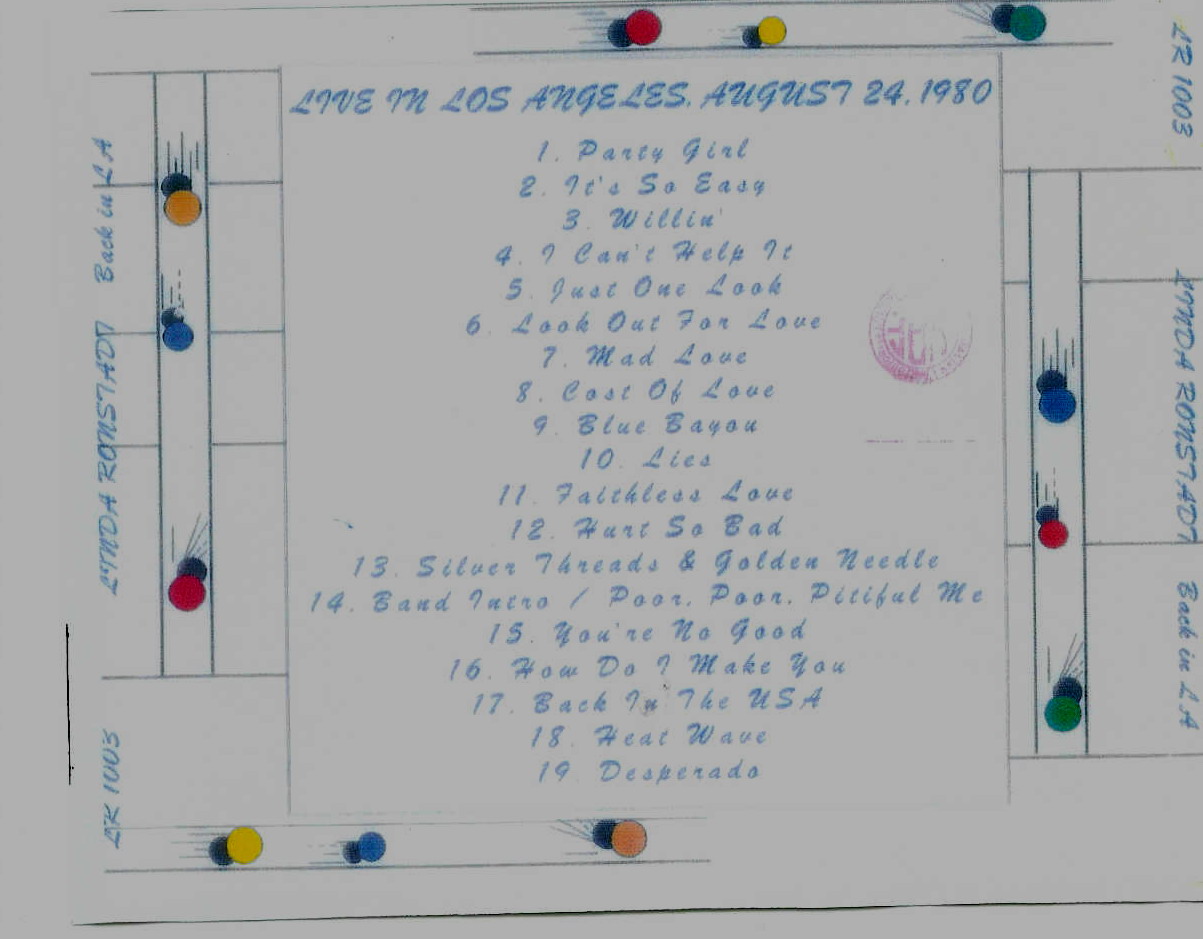 LIVE IN LOS ANGELES, AUGUST 24, 1980
1. Party Girl
2. It's So Easy
3. Willin'
4. I Can't Help It
5. Just One Look
6. Look Out For Love
7. Mad Love
8. Cost Of Love
9. Blue Bayou
10. Lies
11. Faithless Love
12. Hurt So Bad
13. Silver Threads & Golden Needle
14. Band Intro / Poor, Poor, Pitiful Me
15. You're No Good
16. How Do I Make You
17. Back In The USA
18. Heat Wave
19. Desperado
LR 1003 LYNDA RONSTADT Back in LA
LR 1003 LYNDA RONSTADT Back in LA